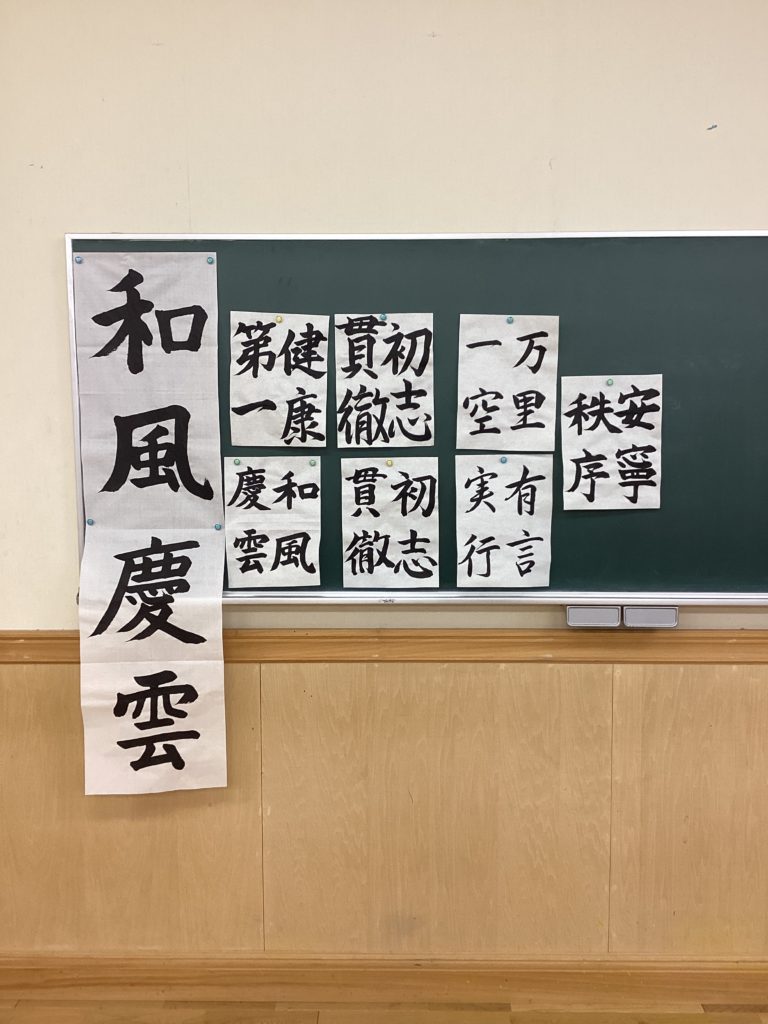 和風慶雲
健康
第一
和風
慶雲
初志
貫徹
初志
貫徹
万里
一空
有言
実行
安寧
秩序